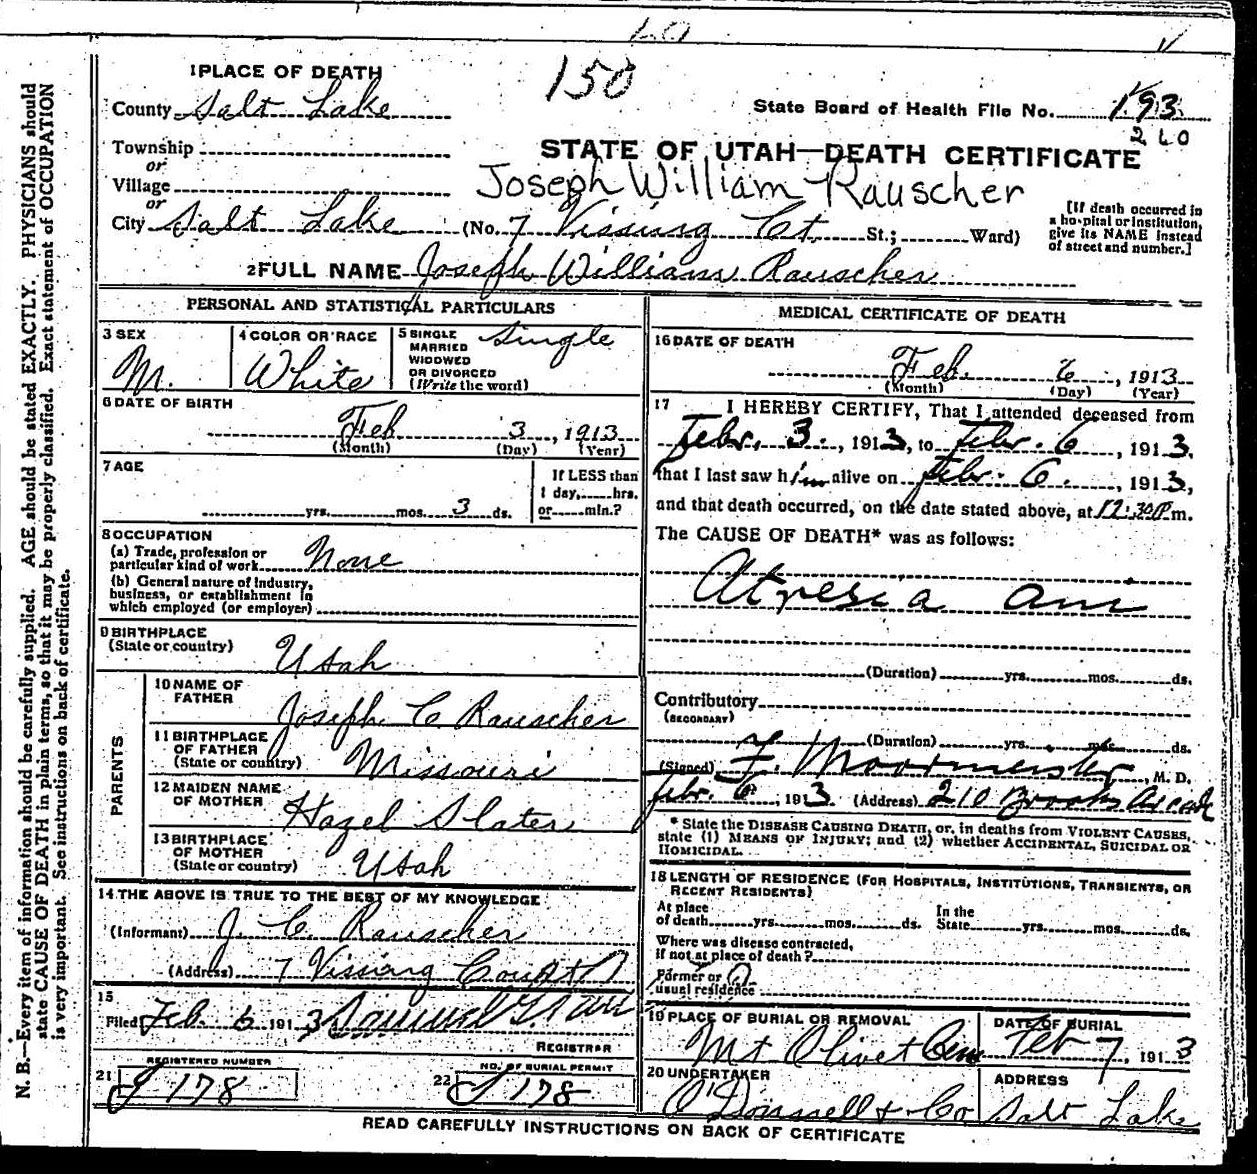 60
1 PLACE OF DEATH
150
County Salt Lake
State Board of Health File No. 193
260
Township
or
STATE OF UTAH—DEATH CERTIFICATE
Village
Joseph William Rauscher
or
City Salt Lake (No. 7 Vissing Ct. St.; Ward)
[If death occurred in
a hospital or institution,
give its NAME instead
of street and number.]
2 FULL NAME Joseph William Rauscher
PERSONAL AND STATISTICAL PARTICULARS
3 SEX
M.
4 COLOR OR RACE
White
5 SINGLE
MARRIED
WIDOWED
OR DIVORCED
(Write the word)
Single
6 DATE OF BIRTH
Feb 3, 1913
(Month) (Day) (Year)
7 AGE
yrs. mos. 3 ds.
If LESS than
1 day, hrs.
or min.?
8 OCCUPATION
(a) Trade, profession or
particular kind of work None
(b) General nature of industry,
business, or establishment in
which employed (or employer)
9 BIRTHPLACE
(State or country)
Utah
PARENTS
10 NAME OF
FATHER
Joseph C Rauscher
11 BIRTHPLACE
OF FATHER
(State or country)
Missouri
12 MAIDEN NAME
OF MOTHER
Hazel Slater
13 BIRTHPLACE
OF MOTHER
(State or country)
Utah
14 THE ABOVE IS TRUE TO THE BEST OF MY KNOWLEDGE
(Informant) J. C. Rauscher
(Address) 7 Vissing Court
15
Filed Feb. 6 1913
REGISTRAR
REGISTERED NUMBER
21 J 178
NO. OF BURIAL PERMIT
22 J 178
MEDICAL CERTIFICATE OF DEATH
16 DATE OF DEATH
Feb. 6, 1913
(Month) (Day) (Year)
17 I HEREBY CERTIFY, That I attended deceased from
Febr. 3., 1913, to Febr. 6, 1913,
that I last saw him alive on Febr. 6., 1913,
and that death occurred, on the date stated above, at 12:30 P m.
The CAUSE OF DEATH* was as follows:
Atresia ani
(Duration) yrs. mos. ds.
Contributory
(SECONDARY)
(Duration) yrs. mos. ds.
(Signed) F. Moormeister, M. D.
Febr. 6, 1913 (Address) 210 Brooks Arcade
* State the DISEASE CAUSING DEATH, or, in deaths from VIOLENT CAUSES,
state (1) MEANS OF INJURY; and (2) whether ACCIDENTAL, SUICIDAL OR
HOMICIDAL.
18 LENGTH OF RESIDENCE (FOR HOSPITALS, INSTITUTIONS, TRANSIENTS, OR
RECENT RESIDENTS)
At place
of death yrs. mos. ds.
In the
State yrs. mos. ds.
Where was disease contracted,
If not at place of death?
Former or
usual residence
19 PLACE OF BURIAL OR REMOVAL
Mt Olivet Cem
DATE OF BURIAL
Feb 7, 1913
20 UNDERTAKER
O'Donnell & Co
ADDRESS
Salt Lake
READ CAREFULLY INSTRUCTIONS ON BACK OF CERTIFICATE
N. B.—Every item of information should be carefully supplied. AGE should be stated EXACTLY. PHYSICIANS should
state CAUSE OF DEATH in plain terms, so that it may be properly classified. Exact statement of OCCUPATION
is very important. See instructions on back of certificate.